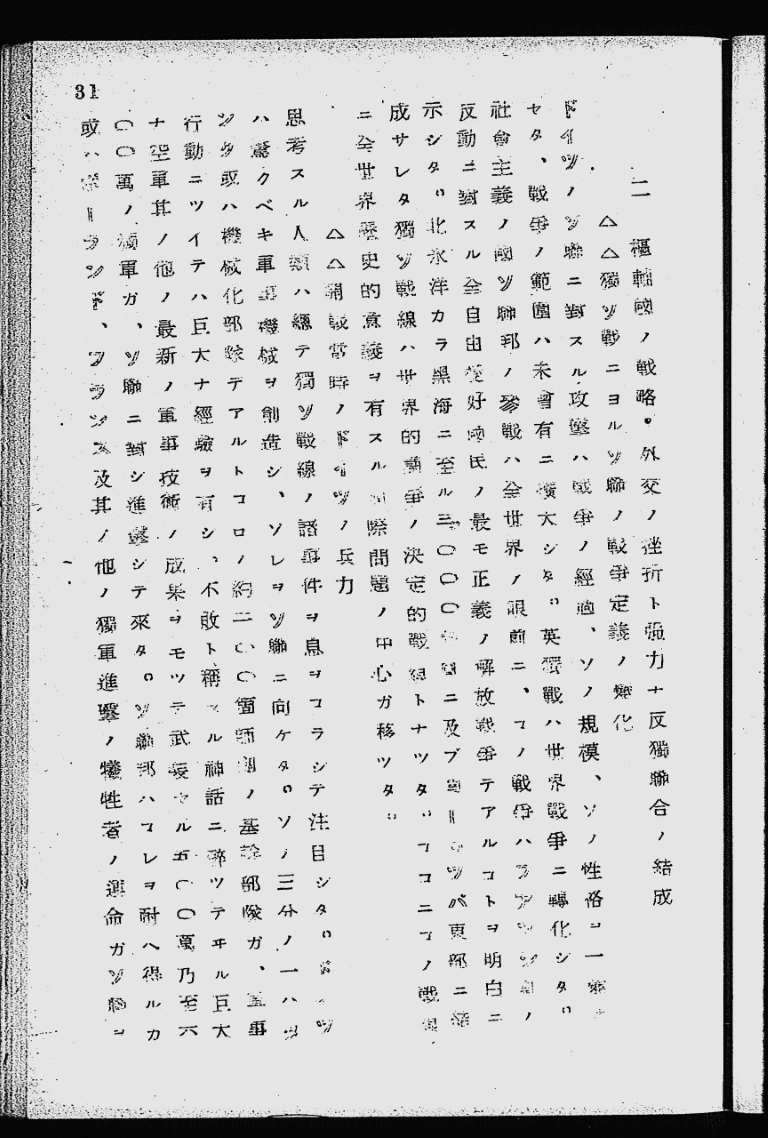 31
二 樞軸國ノ戰略・外交ノ挫折ト强力ナ反獨聯合ノ結成
△△獨ソ戰ニヨルソ聯ノ戰爭定義ノ變化
ドイツノソ聯ニ對スル攻擊ハ戰爭ノ經過、ソノ規模、ソノ性格ヲ一變サ
セタ、戰爭ノ範圍ハ未曾有ニ擴大シタ。英獨戰ハ世界戰爭ニ轉化シタ。
社會主義ノ國ソ聯邦ノ參戰ハ全世界ノ眼前ニ、コノ戰爭ハファッショノ
反動ニ對スル全自由愛好國民ノ最モ正義ノ解放戰爭テアルコトヲ明白ニ
示シタ。北氷洋カラ黑海ニ至ル三〇〇〇ニ及ブヨーロッパ東部ニ結
成サレタ獨ソ戰線ハ世界的鬪爭ノ決定的戰線トナツタ。ココニコノ戰
ニ全世界歷史的意義ヲ有スル國際問題ノ中心ガ移ツタ。
△△開戰當時ノドイツノ兵力
思考スル人類ハ總テ獨ソ戰線ノ諸事件ヲ息ヲコラシテ注目シタ。ドイツ
ハ驚クベキ軍事機械ヲ創造シ、ソレヲソ聯ニ向ケタ。ソノ三分ノ一ハ
ンク或ハ機械化部隊テアルトコロノ約二〇〇箇師團ノ基幹部隊ガ、軍事
行動ニツイテハ巨大ナ經驗ヲ有シ、不敗ト稱スル神話ニ醉ツテヰル巨大
ナ空軍其ノ他ノ最新ノ軍事技術ノ成果ヲモツテ武裝セル五〇〇萬乃至六
〇〇萬ノ獨軍ガ、ソ聯ニ對シ進擊シテ來タ。ソ聯邦ハコレヲ耐ヘ得ルカ
或ハポーランド、フランス及其ノ他ノ獨軍進擊ノ犧牲者ノ運命ガソ聯ヲ